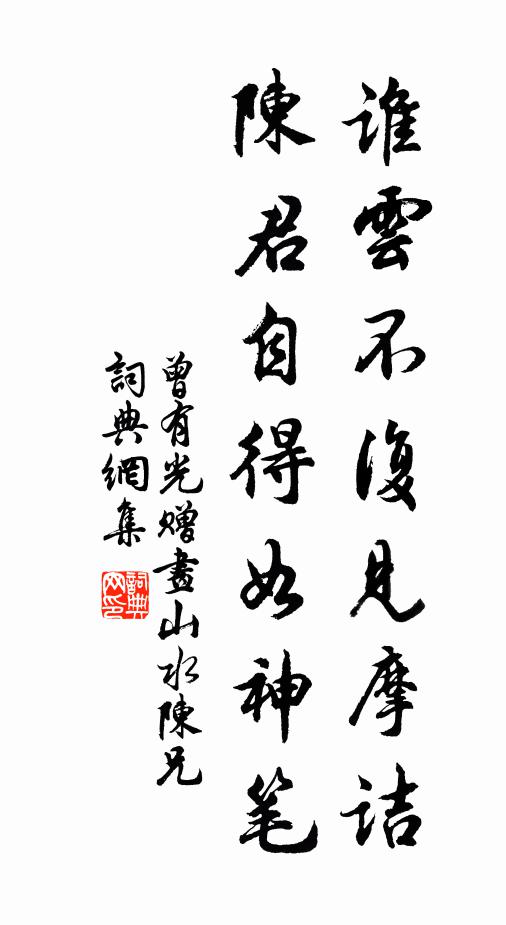 誰雲不復見摩詰
陳君自得如神笔
曾有光贈畫山水陳兄
詞典網集
詞典網印